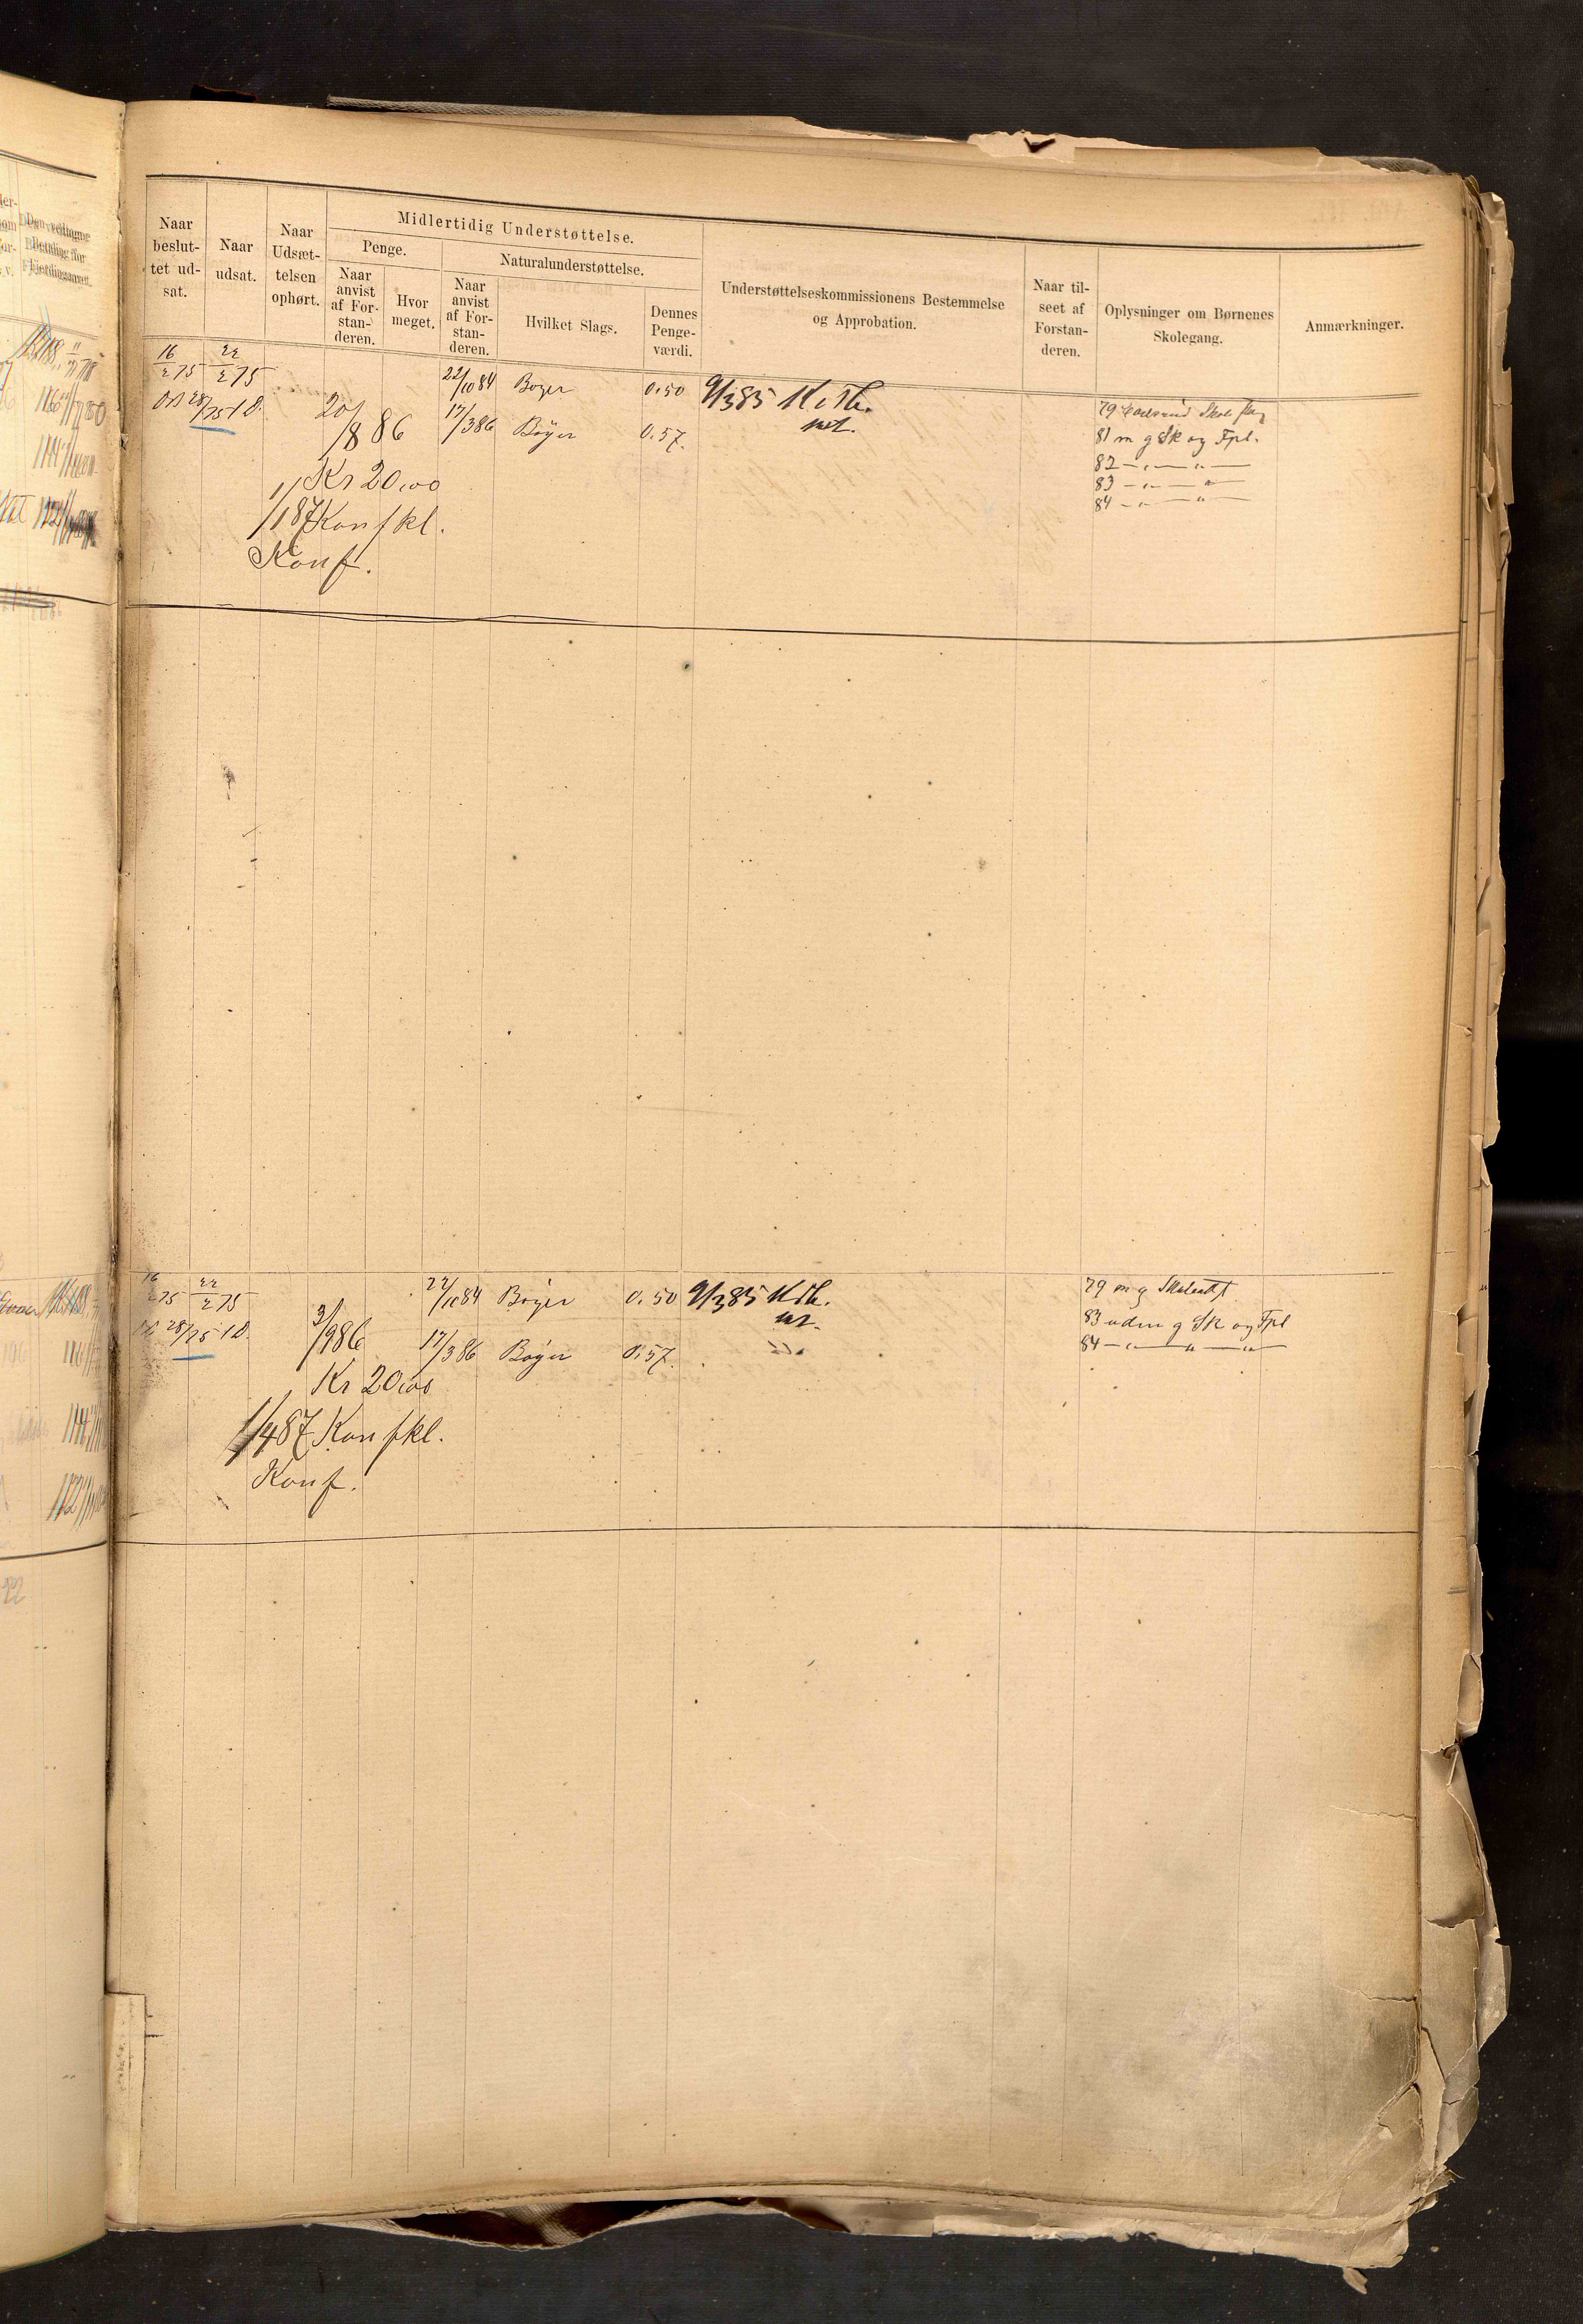 Naar
beslut-
tet ud-
sat.
Naar
udsat.
Naar
Udsæt-
telsen
ophørt.
Midlertidig Understøttelse.
Penge.
Naar
anvist
af For-
stan-
deren.
Hvor
meget.
Naturalunderstøttelse.
Naar
anvist
af For-
stan-
deren.
Hvilket Slags.
Dennes
Penge-
værdi.
Understøttelseskommissionens Bestemmelse
og Approbation.
Naar til-
seet af
Forstan-
deren.
Oplysninger om Børnenes
Skolegang.
Anmærkninger.
16/2 75 22/2 75 22/10 84 Bøger 0.50 9/3 85
28/75 1 D. 20/8 86 17/3 86 Bøger 0.57.
Kr 20,00
1/1 87 Konfkl.
Konf.
79 Skole
81 m g Sk og Fpl.
82 — " — " —
83 — " — " —
84 — " — " —
16/2 75 22/2 75 22/10 84 Bøger 0.50 9/3 85
28/75 1 D. 3/9 86 17/3 86 Bøger 0.57.
Kr 20,00
1/4 87 Konfkl.
Konf.
79 m g
83 uden g Sk og Fpl
84 — " — " — " —